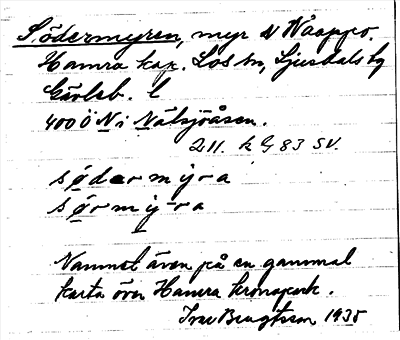 Södermyren, myr N Naappo.
Hamra kap. Los sn, Ljusdals tg
Gävleb. l
400 Ö N i Nätsjöåsen.
211. k G 83 SV.
södermyra
sørmyra
Namnet även på en gammal
karta över Hamra kronopark.
Ivar Bengtsson 1935